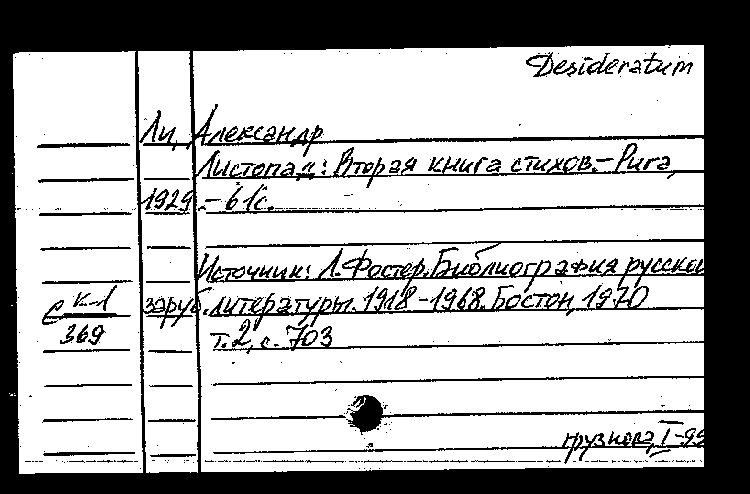 Desideratum
Ли, Александр
Листопад: Вторая книга стихов.- Рига,
1929.- 61с.
Источник: Л. Фостер. Библиография русской
заруб. литературы. 1918-1968. Бостон, 1970
т.2, с. 703
к-1
369
I-95